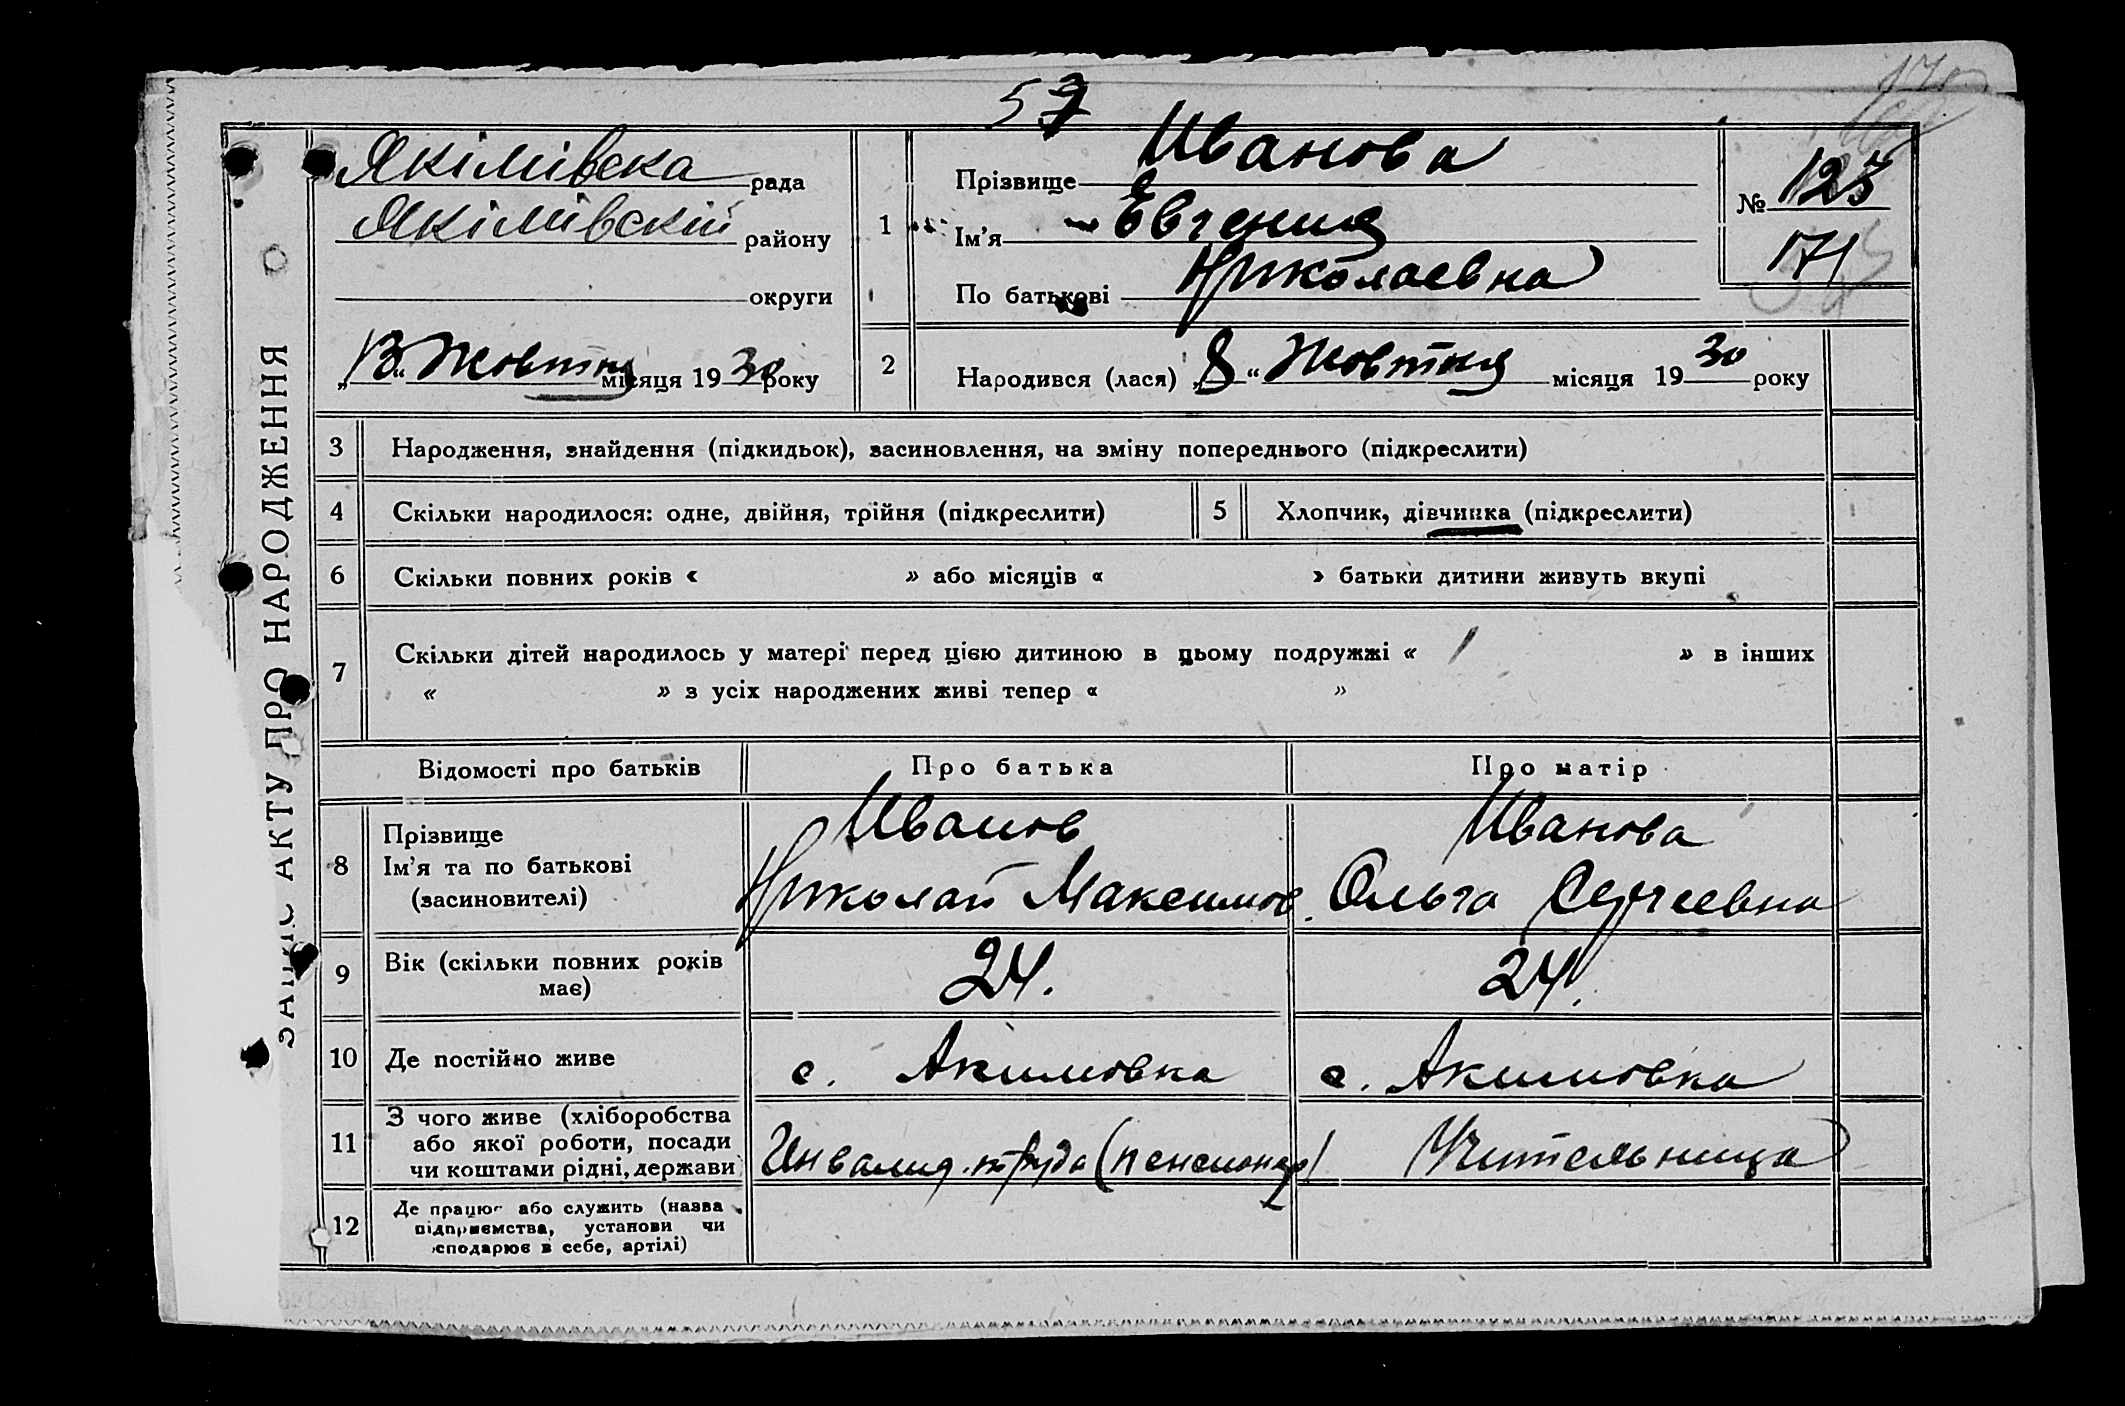 57
Якімівска рада
Якімівскій району
округи
„13“ Жовтня місяця 1930 року
1
Прізвище Иванова
Ім’я Евгения
По батькові Николаевна
№ 125
171
2
Народився (лася) „8“ Жовтня місяця 1930 року
ЗАПИС АКТУ ПРО НАРОДЖЕННЯ
3 Народження, знайдення (підкидьок), засиновлення, на зміну попереднього (підкреслити)
4 Скільки народилося: одне, двійня, трійня (підкреслити)
5 Хлопчик, дівчинка (підкреслити)
6 Скільки повних років « » або місяців « » батьки дитини живуть вкупі
7 Скільки дітей народилось у матері перед цією дитиною в цьому подружжі « 1 » в інших
« » з усіх народжених живі тепер « »
Відомості про батьків
Про батька
Про матір
8
Прізвище
Ім’я та по батькові
(засиновителі)
Иванов
Николай Максимов.
Иванова
Ольга Сергеевна
9
Вік (скільки повних років
має)
24.
24.
10 Де постійно живе
с. Акимовка
с. Акимовка
11
З чого живе (хліборобства
або якої роботи, посади
чи коштами рідні, держави
Инвалид труда (пенсионер)
Учительница
12
Де працює або служить (назва
підприємства, установи чи
сподарює в себе, артілі)